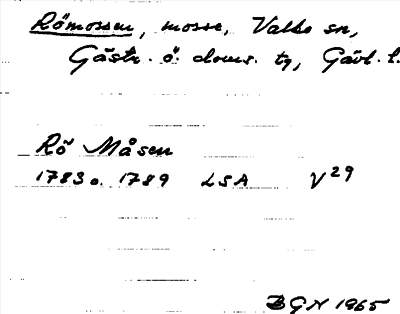 Römossen, mosse, Valbo sn,
Gästr. ö. doms. tg, Gävl. l.
Rö Måsen
1783 o. 1789 LSA V29
BGN 1965